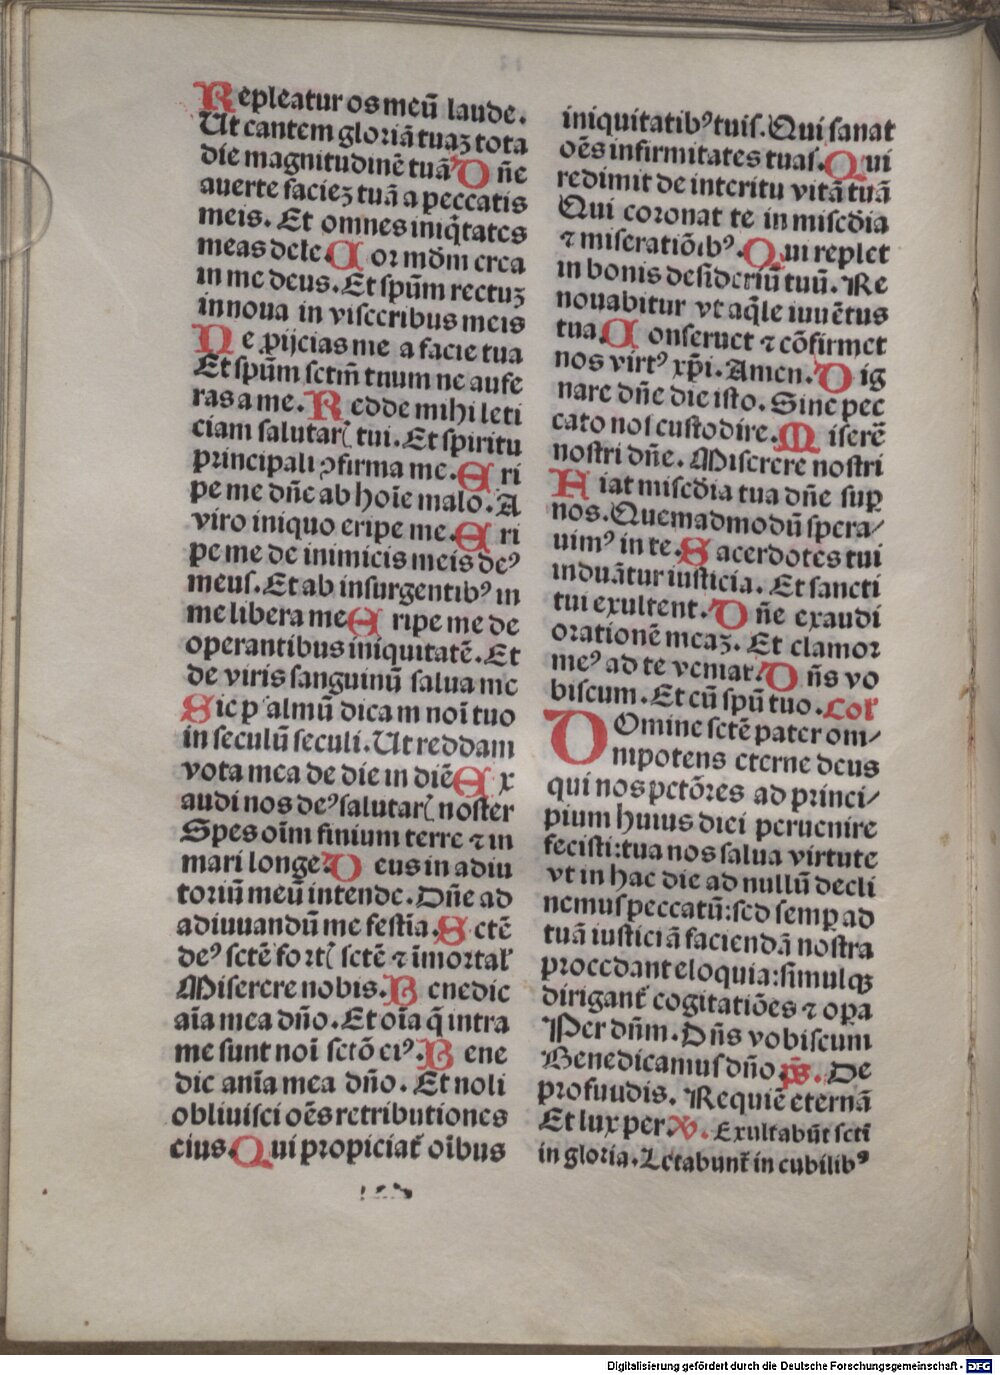 Repleatur os meū laude.
Ut cantem gloriā tuaʒ tota
die magnitudinē tuā Dn̄e
auerte facieʒ tuā a peccatis
meis. Et omnes iniq̄tates
meas dele. Cor mūdū crea
in me deus. Et spūm rectuʒ
innoua in visceribus meis
Ne ꝓijcias me a facie tua
Et spūm sctm̄ tuum ne aufe
ras a me. Redde mihi leti
ciam salutarꝭ tui. Et spiritu
principali ꝯfirma me. Eri
pe me dn̄e ab hoīe malo. A
viro iniquo eripe me. Eri
pe me de inimicis meis deꝰ
meus. Et ab insurgentibꝰ in
me libera me Eripe me de
operantibus iniquitatē. Et
de viris sanguinū salua me
Sic pˢalmū dicam noī tuo
in seculū seculi. Ut reddam
vota mea de die in diē Ex
audi nos deꝰ salutarꝭ noster
Spes oīm finium terre ⁊ in
mari longe. Deus in adiu
toriū meū intende. Dn̄e ad
adiuuandū me festīa. Sctē
deꝰ sctē fortꝭ sctē ⁊ īmortal̕
Miserere nobis. Benedic
aīa mea dn̄o. Et oīa q̄ intra
me sunt noī sctō eiꝰ. Bene
dic anīa mea dn̄o. Et noli
obliuisci oēs retributiones
eius. Qui propiciat̕ oībus
iniquitatibꝰ tuis. Qui sanat
oēs infirmitates tuas. Qui
redimit de interitu vitā tuā
Qui coronat te in misc̄dia
⁊ miseratiōibꝰ. Qui replet
in bonis desideriū tuū. Re
nouabitur vt aq̄le iuuētus
tua. Conseruet ⁊ cōfirmet
nos virtꝰ xp̄i. Amen. Dig
nare dn̄e die isto. Sine pec
cato nos custodire. Miserē
nostri dn̄e. Miserere nostri
Fiat misc̄dia tua dn̄e suꝑ
nos. Quemadmodū spera/
uimꝰ in te. Sacerdotes tui
induātur iusticia. Et sancti
tui exultent. Dn̄e exaudi
orationē meaʒ. Et clamor
meꝰ ad te veniat. Dn̄s vo
biscum. Et cū spū tuo. Col̕
DOmine sctē pater om/
nipotens eterne deus
qui nos pctōres ad princi/
pium huius diei peruenire
fecisti: tua nos salua virtute
vt in hac die ad nullū decli
nemus peccatū: sed semꝑ ad
tuā iusticiā faciendā nostra
procedant eloquia: simulqʒ
dirigant̕ cogitatiōes ⁊ oꝑa
Per dn̄m. Dn̄s vobiscum
Benedicamus dn̄o. p̄s. De
profuudis. Requiē eternā
Et lux per. V. Exultabūt scti
in gloria. Letabunt̕ in cubilibꝰ
Digitalisierung gefördert durch die Deutsche Forschungsgemeinschaft - DFG